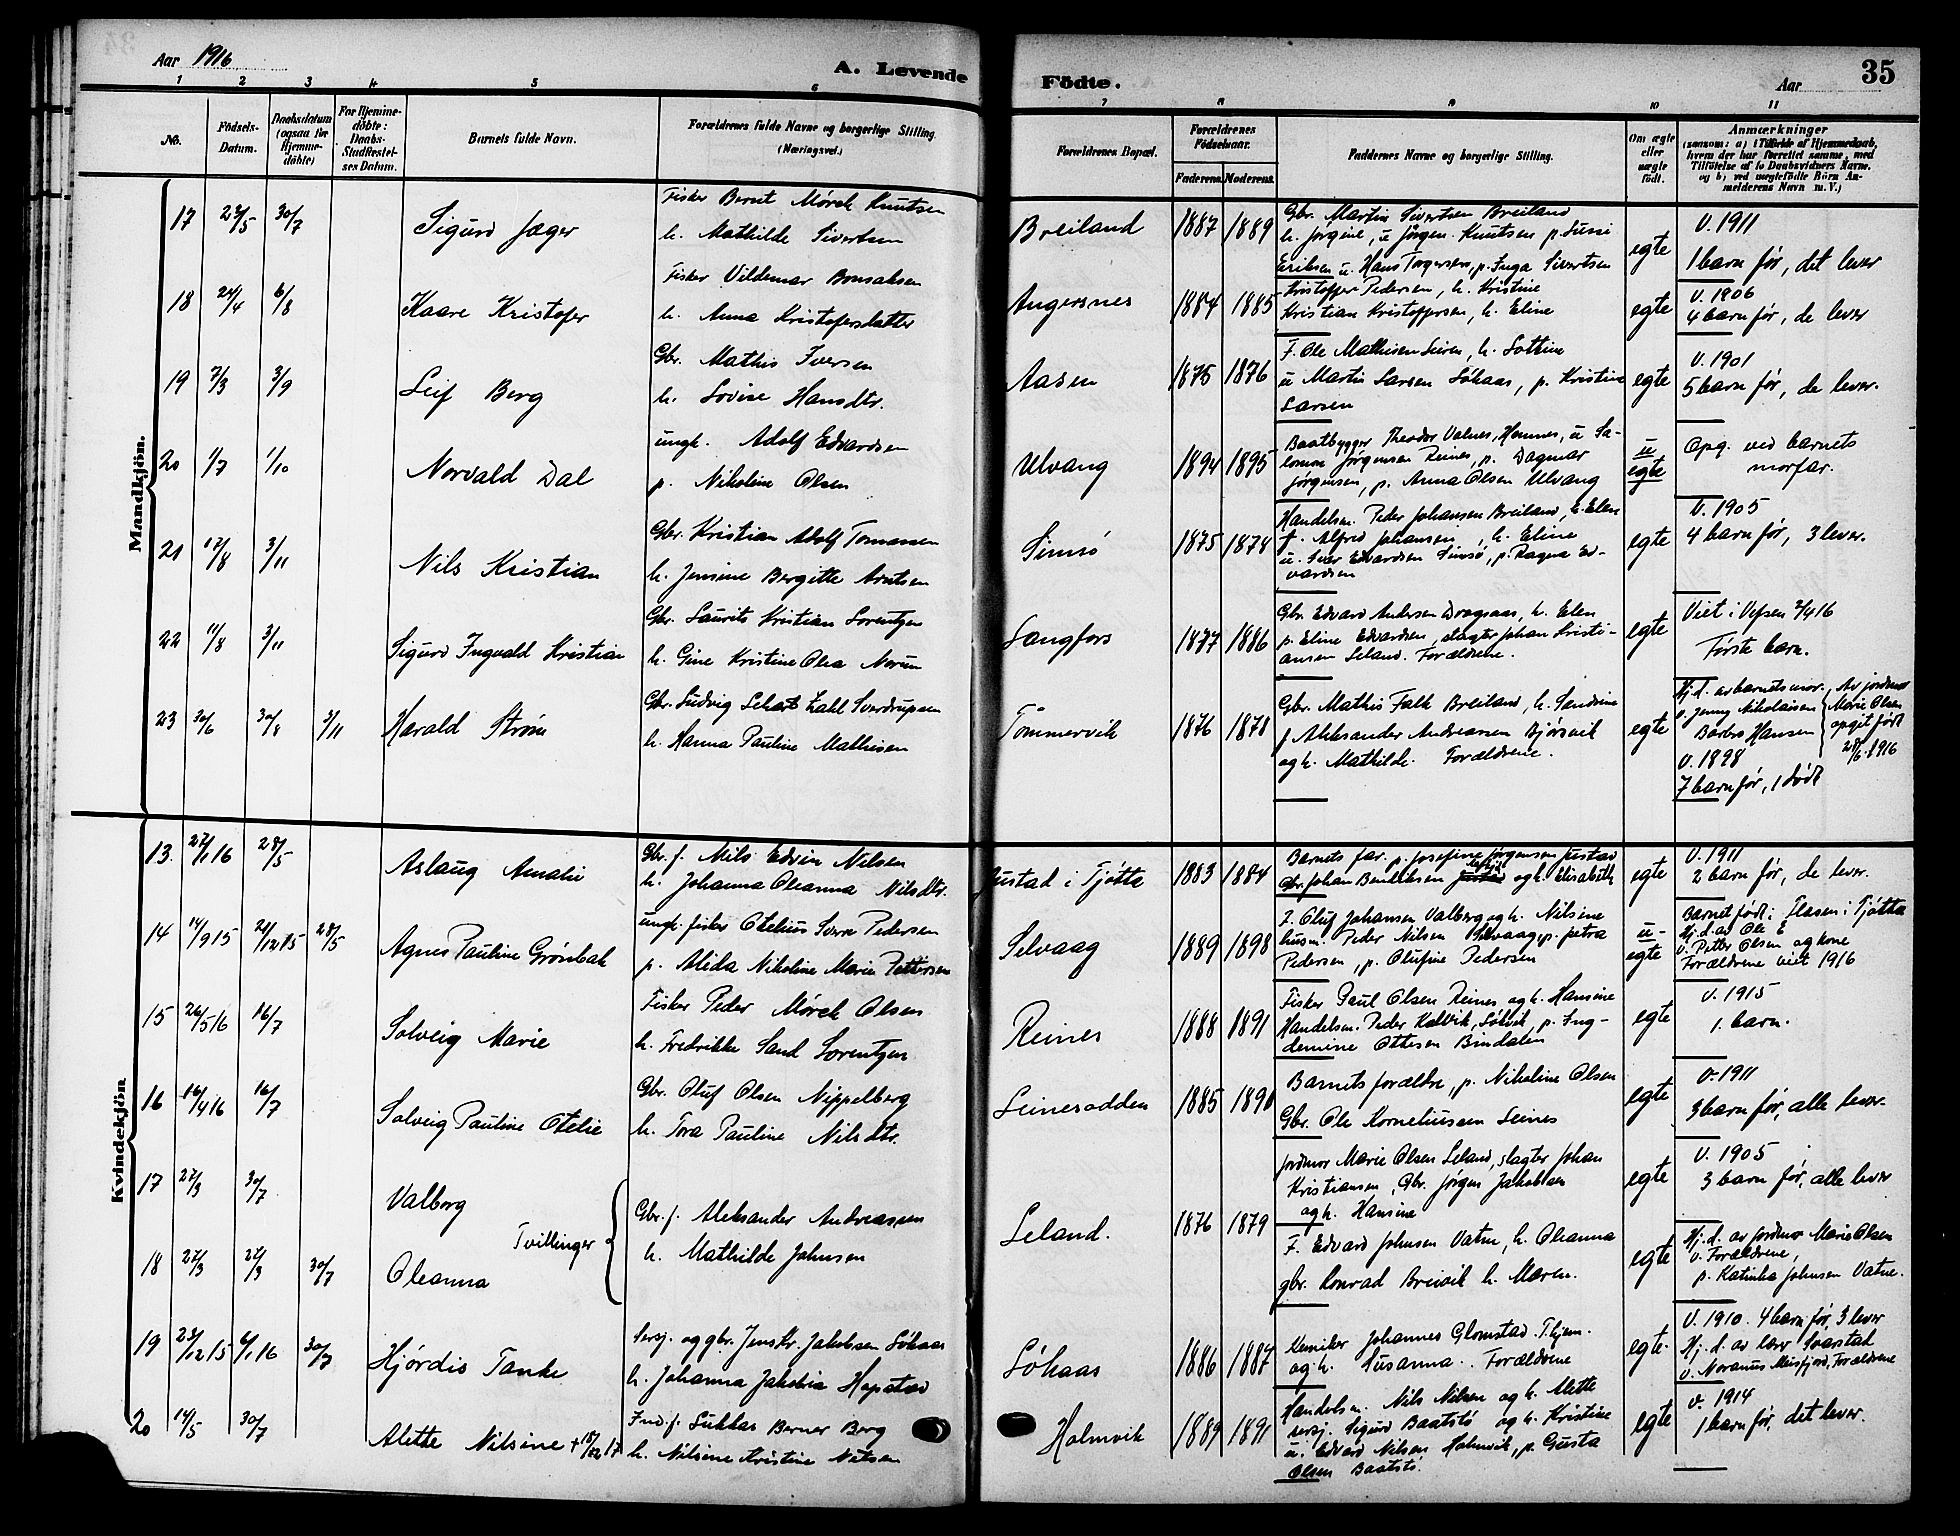 Aar 1916
A. Levende Födte.
Aar
35
1 2 3 4 5 6 7 8 9 10 11
No.
Födsels-Datum.
Daabsdatum (ogsaa for Hjemme-döbte)
For Hjemme-döbte: Daabs-Stadfæstel-ses Datum.
Barnets fulde Navn.
Forældrenes fulde Navne og borgerlige Stilling. (Næringsvei.)
Forældrenes Bopæl.
Forældrenes Födselsaar.
Faderens. Moderens.
Faddernes Navne og borgerlige Stilling.
Om ægte eller uægte födt.
Anmærkninger
(saasom: a) i Tilfælde af Hjemmedaab, hvem der har forrettet samme, med Tilföielse af to Daabsvidners Navne, og b) ved uægtefödte Börn An-melderens Navn m. V.)
Mandkjön.
17 23/5 30/7 Sigurd Jæger
Fisker Bernt Mørch Knutsen
h. Mathilde Sivertsen
Breiland 1887 1889
Gbr. Martin Sivertsen Breiland
h. Jørgine, u Jørgen Knutsen p. Sussi
Eriksen u. Hans Torgersen, p. Inga Sivertsen
egte
V. 1911
1 barn før, det lever
18 24/4 6/8 Kaare Kristofer
Fisker Vildemar Bonsaksen
h. Anna Kristofersdatter
Angersnes 1884 1885
Kristoffer Pedersen, h. Kristine
Kristian Kristoffersen, h. Eline
egte
V. 1906
4 barn før, de lever
19 7/3 3/9 Leif Berg
Gbr. Mathis Iversen
h. Lovise Hansdtr.
Aasen 1875 1876
F. Ole Mathisen Leiren, h. Lottine
u Martin Larsen Løkaas, p. Kristine
Larsen
egte
V. 1901
5 barn før, de lever.
20 1/7 1/10 Norvald Dal
ungk. Adolf Edvardsen
p. Nikoline Olsen
Ulvang 1894 1895
Baatbygger Theodor Valnes, Hemnes, u Sa-
lomon Jørgensen Reines, p. Dagmar
Jørgensen, p. Anna Olsen Ulvang
u
egte
Opg. ved barnets
morfar.
21 12/8 3/11 Nils Kristian
Gbr. Kristian Adolf Tomassen
h. Jensine Bergitte Arntsen
Simsø 1875 1874
Handelsm. Peder Johansen Breiland, h. Elen
f. Alfred Johansen, h. Eline
u. Iver Edvardsen Simsø, p. Ragna Ed-
vardsen
egte
V. 1905
4 barn før, 3 lever.
22 11/8 3/11 Sigurd Ingvald Kristian
Gbr. Laurits Kristian Lorentzen
h. Gine Kristine Olea Norum
Langfors 1877 1886
Gbr. Edvard Andersen Dragsaas, h. Elen
p. Eline Edvardsen, slagter Johan Kristi-
ansen Leland. Forældrene.
egte
Viet i Vefsen 2/4 16
Første barn.
23 30/6 30/8 3/11 Harald Strøm
Gbr. Ludvig Zahl Sverdrupsen
h. Hanna Pauline Mathisen
Tømmervik 1876 1878
Gbr. Mathis Falk Breiland, h. Sandrine
f Aleksander Andreassen Bjørsvik
og h. Mathilde. Forældrene.
egte
Hj. d. av barnets mor.
Jenny Nikolaisen
Barbro Hansen
V. 1898
7 barn før, 1 død
Av jordmor
Marie Olsen
opgit født
28/6. 1916
Kvindekjön
13. 27/1 16 28/5 Aslaug Amalie
Gbr. f. Nils Edvin Nilsen
h. Johanna Oleanna Nilsdtr.
Justad i Tjøtta 1883 1884
Barnets far. p. Josefine Jørgensen Justad
Gbr. Johan Bendiksen og h. Elisabeth
egte
V. 1911
2 barn før, de lever.
14 14/9 15 26/12 15 28/5 Agnes Pauline Grønbak
ungk. fisker Otelius Sverre Pedersen
p. Alida Nikoline Marie Pettersen
Selvaag 1889 1898
F. Oluf Johansen Valberg og h. Nilsine
husm. Peder Nilsen Selvaag, p. Petra
Pedersen, p. Olufine Pedersen
u-
egte
Barnet født i Flasen i Tjøtta
Hj. d. av Ole E
v. Petter Olsen og kone
Forældrene viet 1916
15 26/5 16 16/7 Solveig Marie
Fisker Peder Mørch Olsen
h. Fredrikke Sand Lorentzen
Reines 1888 1891
Fisker Paul Olsen Reines og h. Hansine
Handelsm. Peder Kalvik, Løkvik, p. Ing-
demine Ottesen Bindalen
egte
V. 1915
1. barn.
16 16/4 16 16/7 Solveig Pauline Otelie
Gbr. Oluf Olsen Nippelberg
h. Tora Pauline Nilsdtr.
Leinesodden 1885 1890
Barnets forældre, p. Nikoline Olsen
Gbr. Ole Korneliussen Leines
egte
V. 1911
3 barn før, alle lever.
17 27/3 30/7 Valborg
Tvillinger
Gbr. f. Aleksander Andreassen
h. Mathilde Johnsen
Leland. 1876 1879
Jordmor Marie Olsen Leland, slagter Johan
Kristiansen, Gbr. Jørgen Jakobsen
og h. Hansine
egte
V. 1905
3 barn før, alle lever
18 27/3 27/3 30/7 Oleanna
F. Edvard Johnsen Vatne, h. Oleanna
gbr. Konrad Breivik h. Maren.
egte
Hj. d. av jordmor Marie Olsen
v. Forældrene,
p. Katinka Johnsen Vatne.
19 23/12 15 6/1 16 30/7 Hjørdis Tanke
Sersj. og gbr. Jens Kr. Jakobsen Løkaas
h. Johanna Jakobia Hopstad
Løkaas 1886 1887
Kemiker Johannes Glomstad T.hjem.
og h. Susanna.. Forældrene
egte.
V. 1910. 4 barn før, 3 lever
Hj. d. av lærer Svarstad
v. Noranus Meisfjord, Forældrene
20 14/5 30/7 Alette Nilsine + 18/12 17
Ind. f. Lukkas Berner Berg
h. Nilsine Kristine Nilsen
Holmvik 1889 1891
Handelsm. Nils Nilsen og h. Alette
sersj. Sigurd Baatstø og h. Kristine
u. Edvard Nilsen Holmvik, p. Gusta
Olsen Baatstø.
egte
V. 1914
1 barn før, det lever.